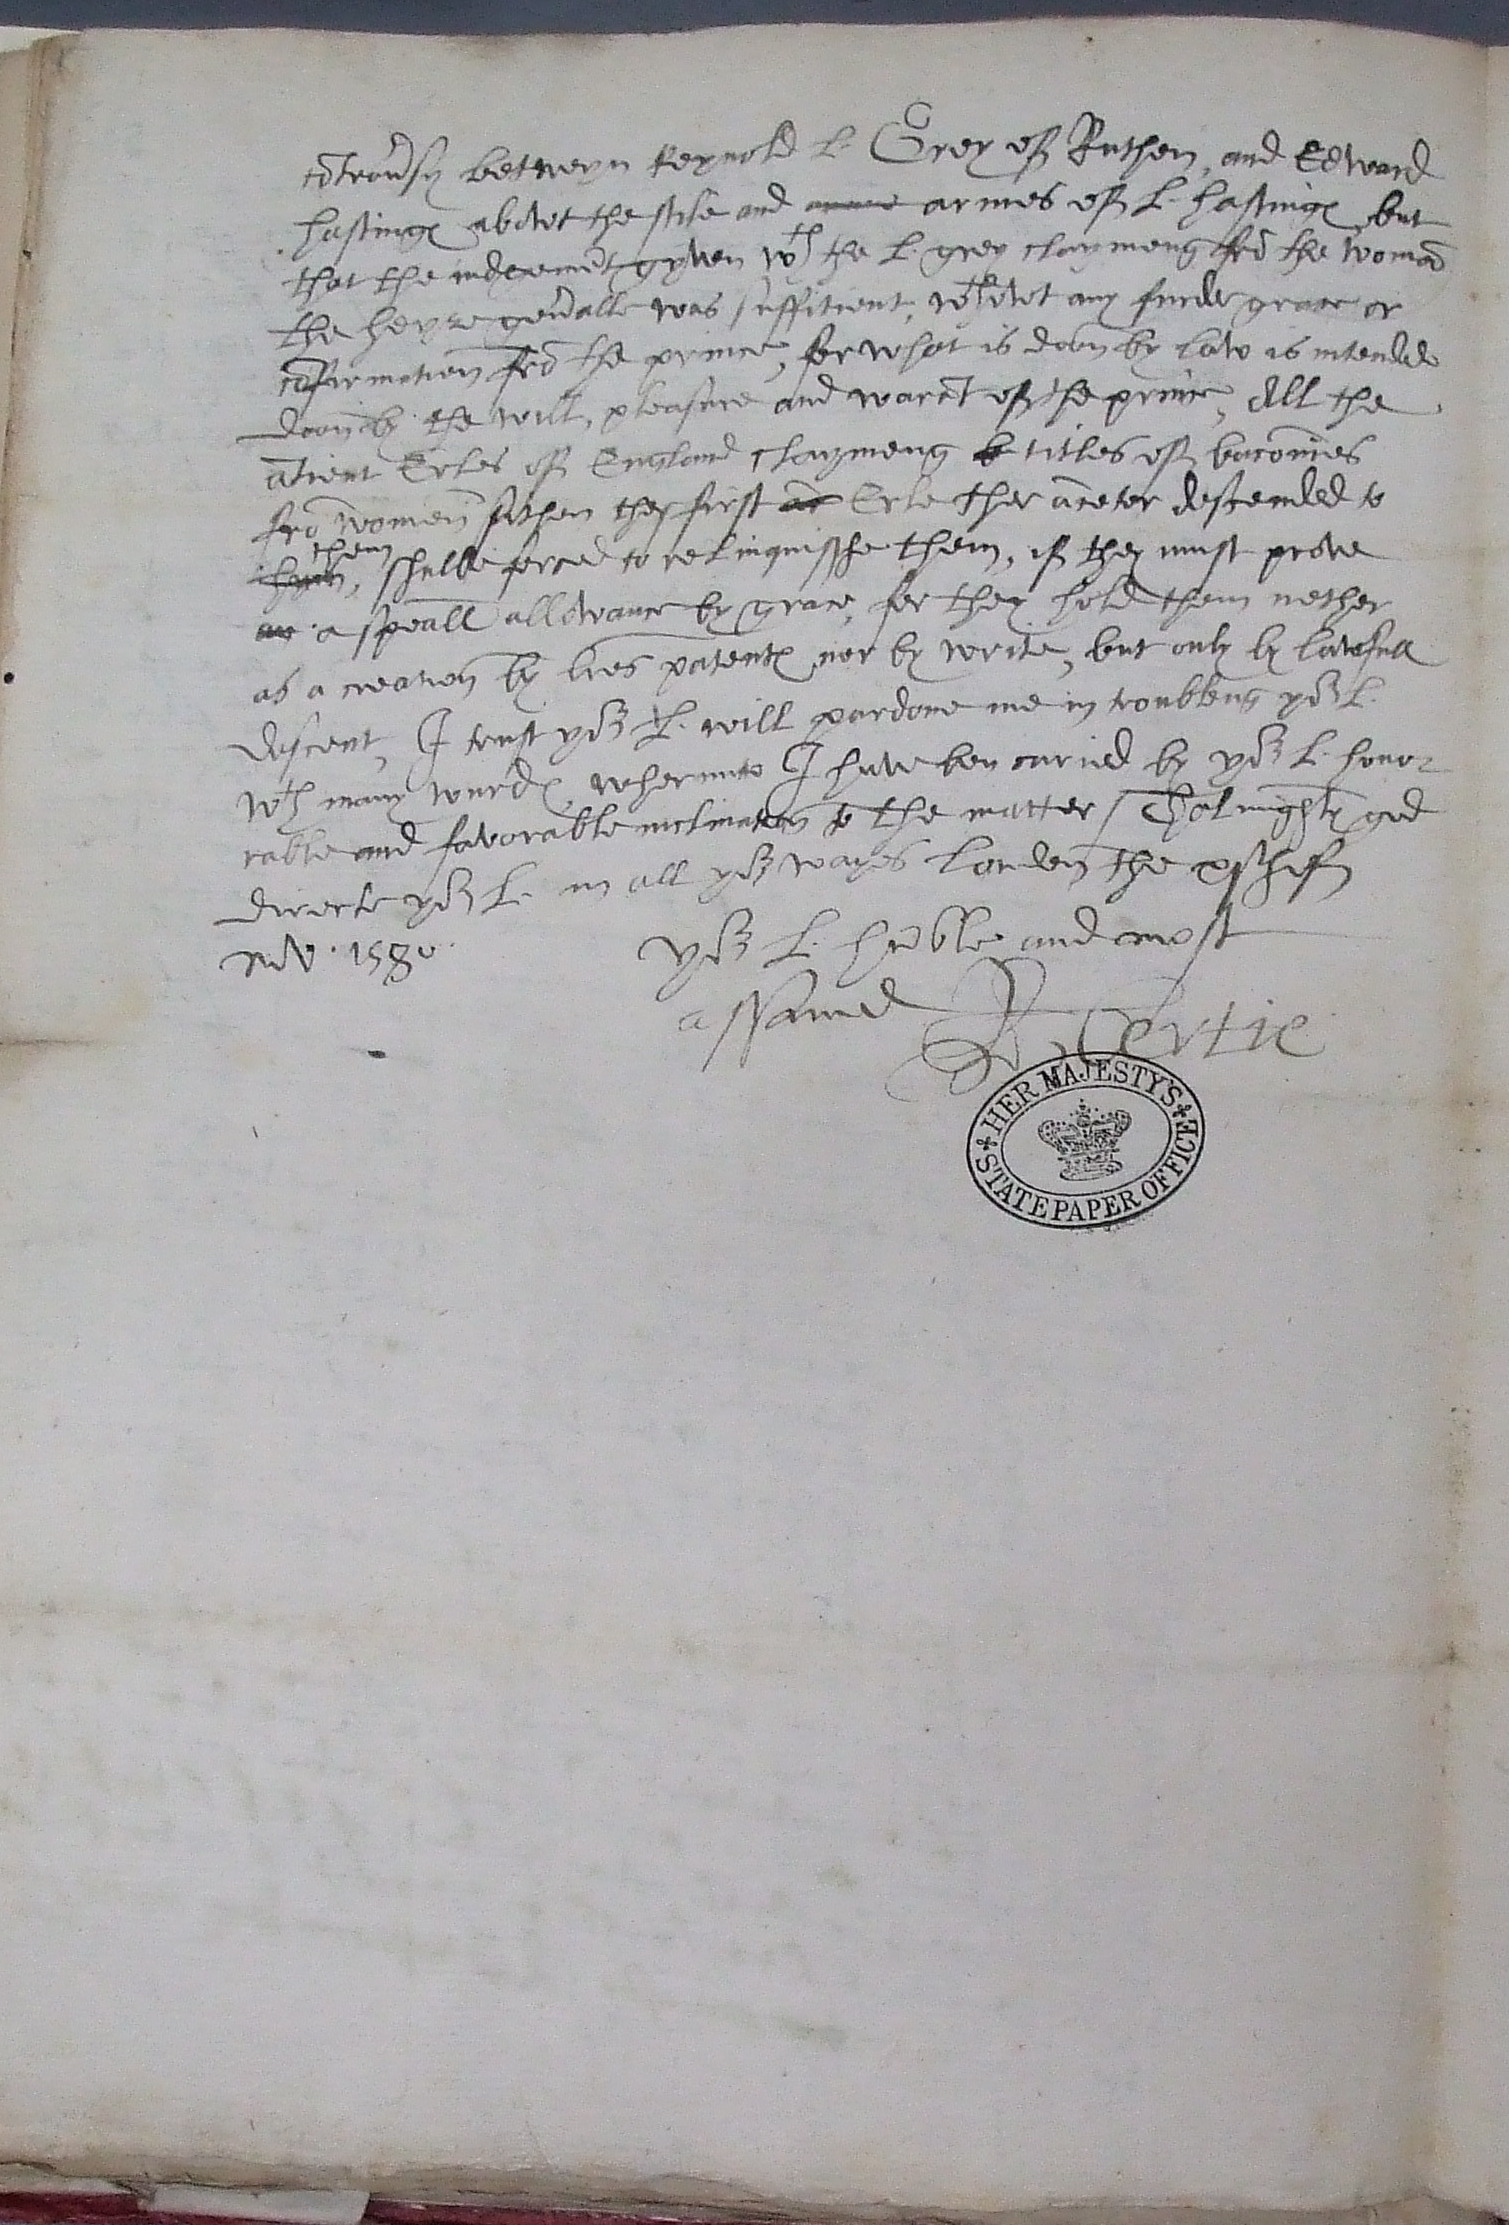 cōtrov̄sy betweyn Reynold L. Grey off Ruthen, and Edward
hastings abowt the stile and armes off L. hastings but
that the iudgemēt gyven wth the L. grey claymeng frō the womā
the heyre gen̄alle was suffitient, wthowt any furder grace or
cōfirmation frō the prince, for what is doon by law is intended
doon by the will, pleasure and warāt off the prince, All the
ātient Erles off England claymeng titles off baronies
frō women sithen they first Erle ther ācetor descended to
them, shulbe forced to relinquisshe them, iff they must prove
a speāll allowance by grace, for they hold them nether
as a creation by l̄res patents nor by write, but only by lawfull
descent, I trust yor L. will pardone me in troubleng yor L.
wth many wurds, wherunto I have ben caried by yor L. hono-
rable and favorable inclination to the matter / Thalmighty god
directe yor L. in all yor wayes London the
Nov. 1580.
yor L. hūble and most
assured R Bertie
HER MAJESTY'S
STATE PAPER OFFICE